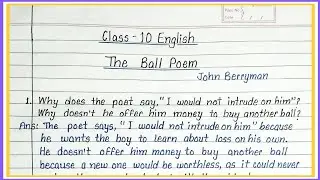 Class - 10 English
The Ball Poem
John Berryman
1. Why does the poet say, "I would not intrude on him"?
Why doesn't he offer him money to buy another ball?
Ans: The poet says, "I would not intrude on him" because
he wants the boy to learn about loss on his own.
He doesn't offer him money to buy another ball
because a new one would be worthless, as it could never